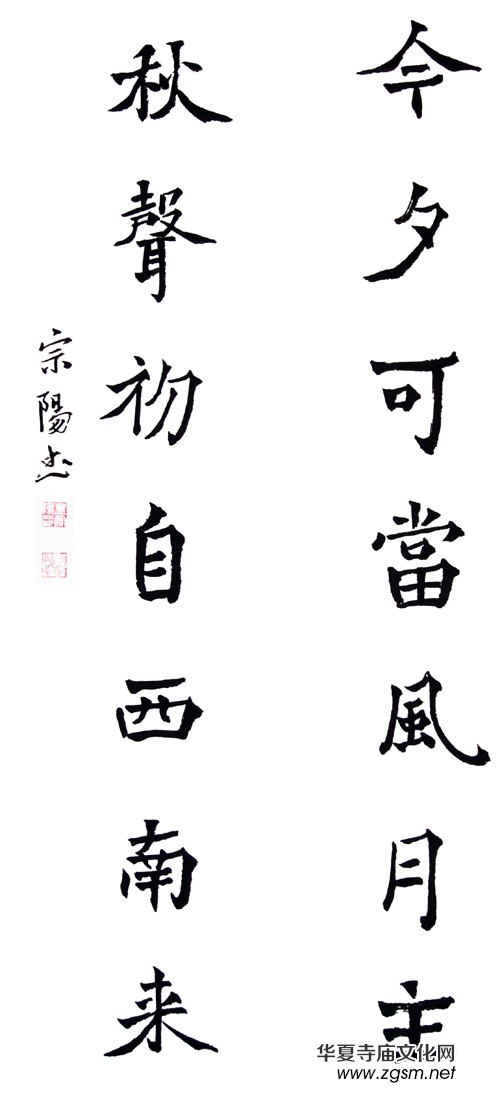 今夕可當風月主
秋聲初自西南来
宗陽书
华夏寺庙文化网
www.zgsm.net